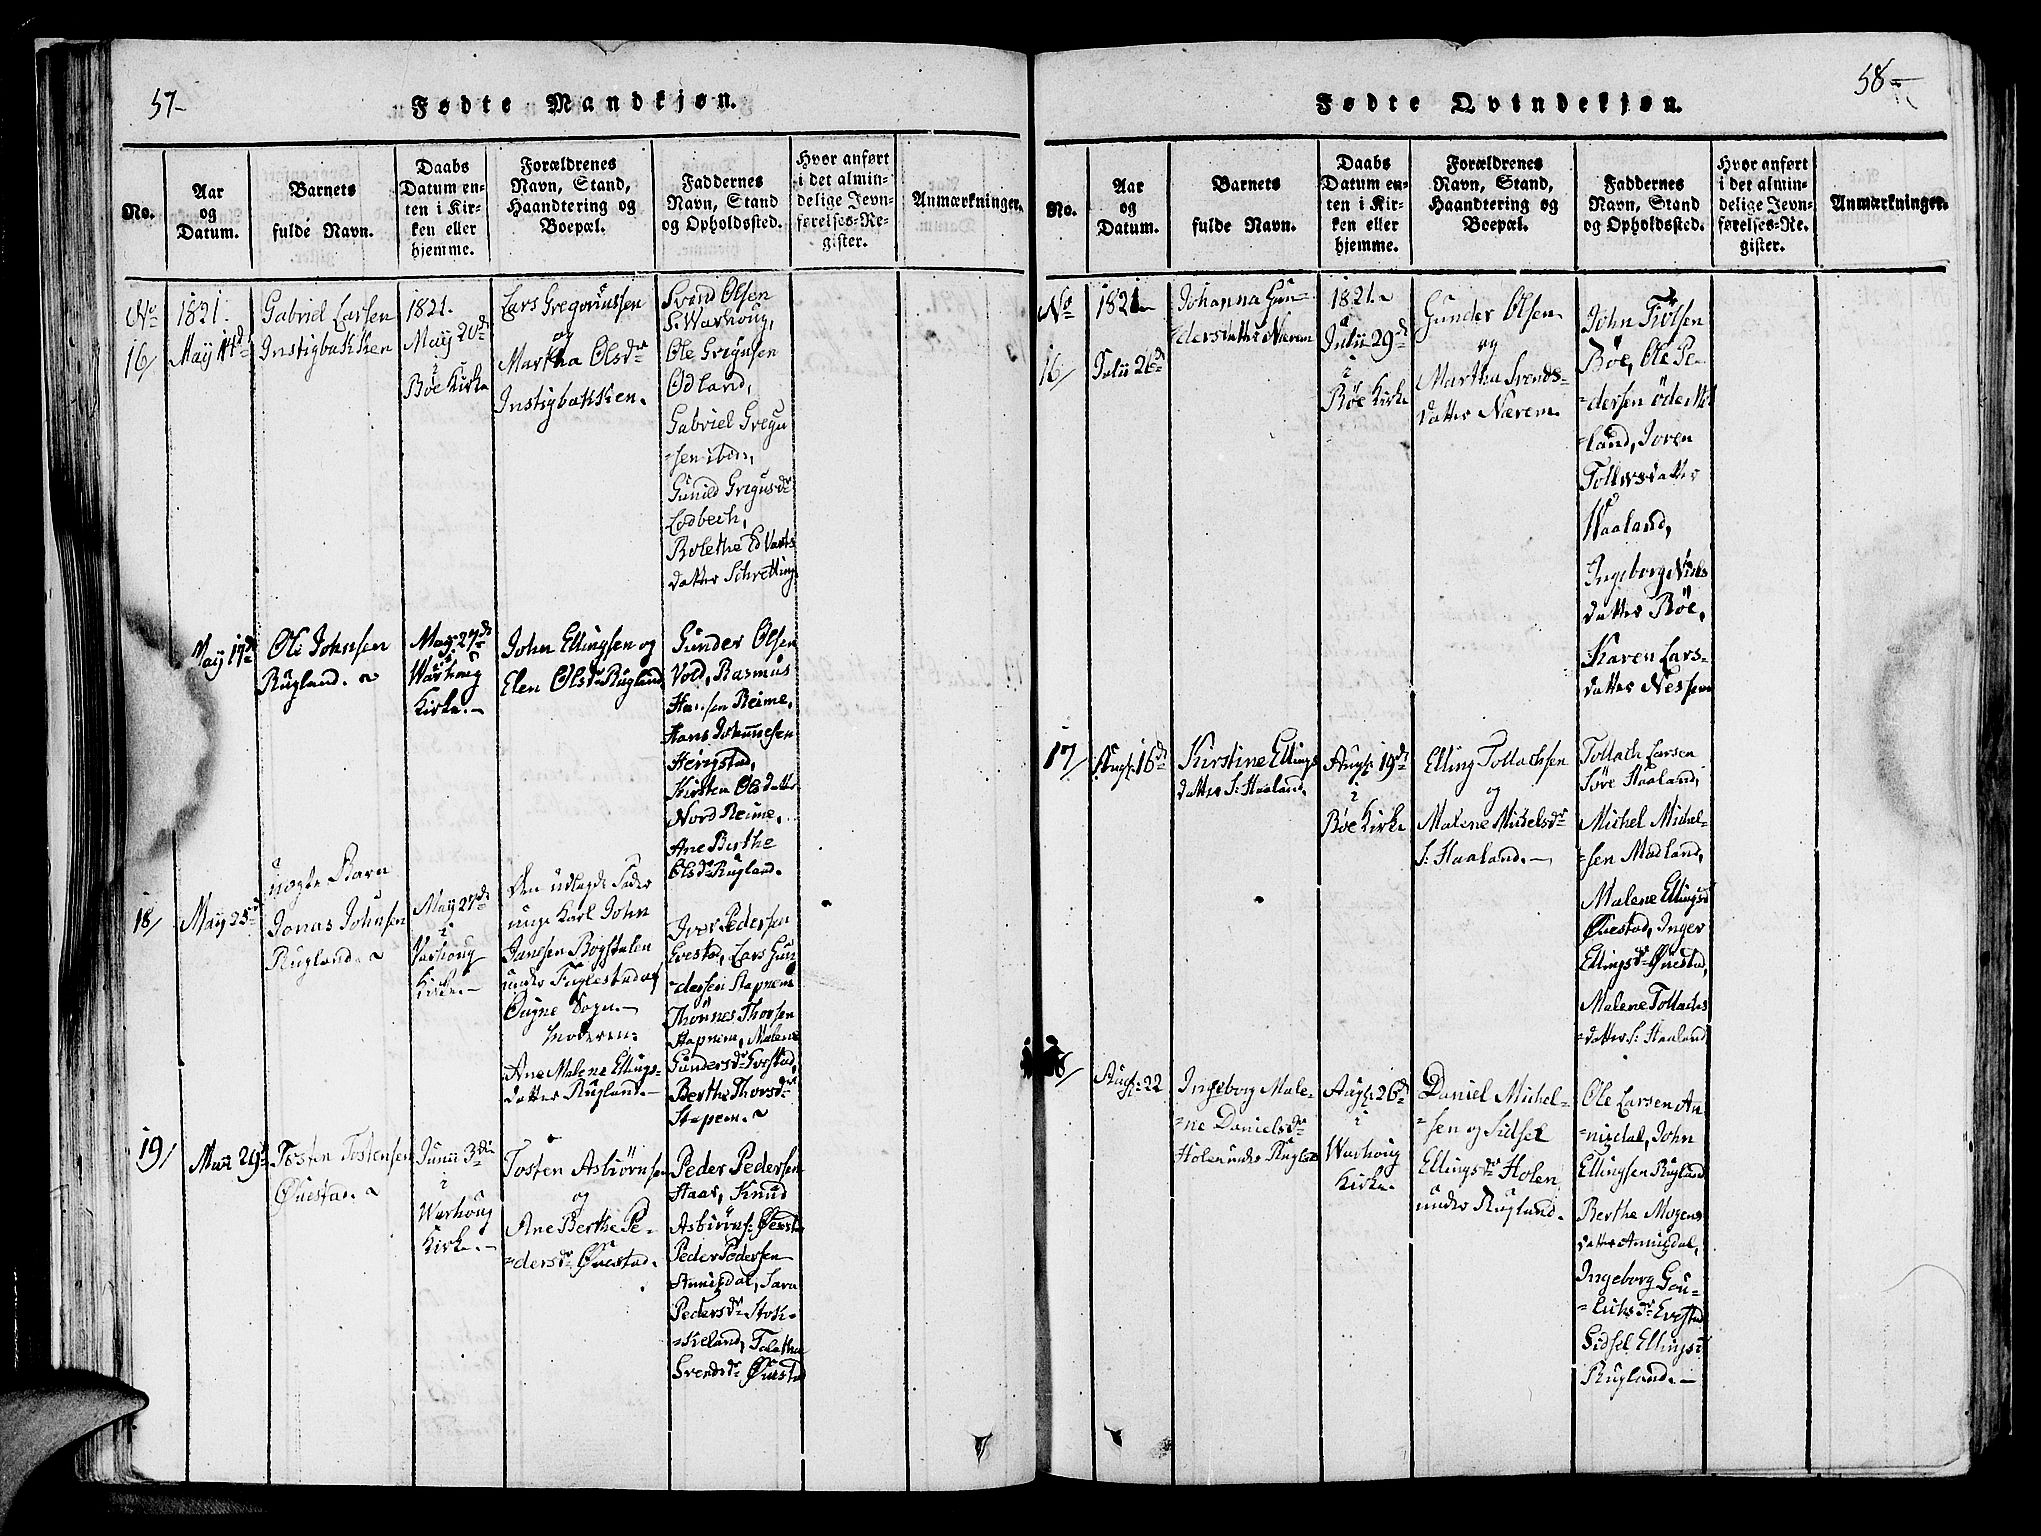 57-
Fødte Mandkjøn.
No.
Aar
og
Datum.
Barnets
fulde Navn.
Daabs
Datum en-
ten i Kir-
ken eller
hjemme.
Forældrenes
Navn, Stand,
Haandtering og
Boepæl.
Faddernes
Navn, Stand
og Opholdssted.
Hvor anført
i det almin-
delige Jevn-
førelses-Re-
gister.
Anmærkninger.
No
16/
1821.
May 14d
Gabriel Larsen
Instigbakken
1821.
May 20d
i
Bøe Kirke
Lars Gregoriussen
og
Martha Olsdr
Instigbakken.
Svend Olsen
S. Warhoug,
Ole Gregusen
Ødland,
Gabriel Gregu
=sen ibdm,
Gunild Gregusdr
Lodbech,
Bolethe Edvarts
datter Schretting
May 19d
Ole Johnsen
Rugland.
May 27d
i
Warhoug
Kirke.-
John Ellingsen og
Elen Olsdr Rugland
Gunder Olsen
Vold, Rasmus
Hansen Reime,
Hans Johannesen
Herigstad,
Kirsten Olsdatter
Nord Reime,
Ane Berthe
Olsdr Rugland.
18/
May 25d
uægte Barn
Jonas Johnsen
Rugland.
May 27d
i
Varhoug
Kirke.-
Den udlagde Fader
unge Karl John
Jansen Bogstalen
under Fuglestad af
Øugne Sogn.-
Moderen:
Ane Malene Ellings-
datter Rugland.-
Iver Pedersen
Evestad, Lars Gun
=dersen Stapnem
Thönnes Thorsen
Stapnem, Malene
Gundersdr Evestad,
Berthe Thorsdr
Stapem.
19/
Maii 29d
Tosten Tostensen
Øuestad.
Junii 3d
i
Warhoug
Kirke.-
Tosten Asbiørnsen
og
Ane Berthe Pe-
=dersdr Øuestad.
Peder Pedersen
Haar, Knud
Asbiörns: Øuesta
Peder Pedersen
Annigdal, Sara
Pedersdr Stok-
=keland, Taletha
Svendsdr Øuestad
58-
Fødte Qvindekjøn.
No.
Aar
og
Datum.
Barnets
fulde Navn.
Daabs
Datum en-
ten i Kir-
ken eller
hjemme.
Forældrenes
Navn, Stand,
Haandtering og
Boepæl.
Faddernes
Navn, Stand
og Opholdssted.
Hvor anført
i det almin-
delige Jevn-
førelses-Re-
gister.
Anmærkninger.
No
16/
1821
Julii 26d
Johanna Gun-
dersdatter Nærem
1821.
Julii 29d
i
Bøe Kirke
Gunder Olsen
og
Martha Svends-
datter Nærem
John Frölsen
Bøe, Ole Pe-
=dersen øde
=land, Joren
Tollevsdatter
Waaland,
Ingeborg Niels
datter Bøe,
Karen Lars-
datter Nessem
17/
Augs: 16d
Kirstine Ellings
datter S: Haaland.
Augs: 19d
i
Bøe Kirke
Elling Tollachsen
og
Malene Mickelsdr
S: Haaland.-
Tollach Larsen
Søre Haaland,
Michel Michel-
=sen Madland,
Malene Ellingsd
Øuestad, Inger
Ellingsdr Øuestad,
Malene Tollachs
=datter S: Haaland
18/
Augs: 22
Ingeborg Male-
=ne Danielsdr
Holen under Rugland
Augs: 26d
i
Warhoug
Kirke.
Daniel Michel-
=sen og Sidsel
Ellingsdr Holen
under Rugland.
Ole Larsen An
=nigdal, John
Ellingsen Rugland
Berthe Mogens
datter Annigdal,
Ingeborg Gou-
=lichsdr Evestad
Sidsel Ellingsd
Rugland.-